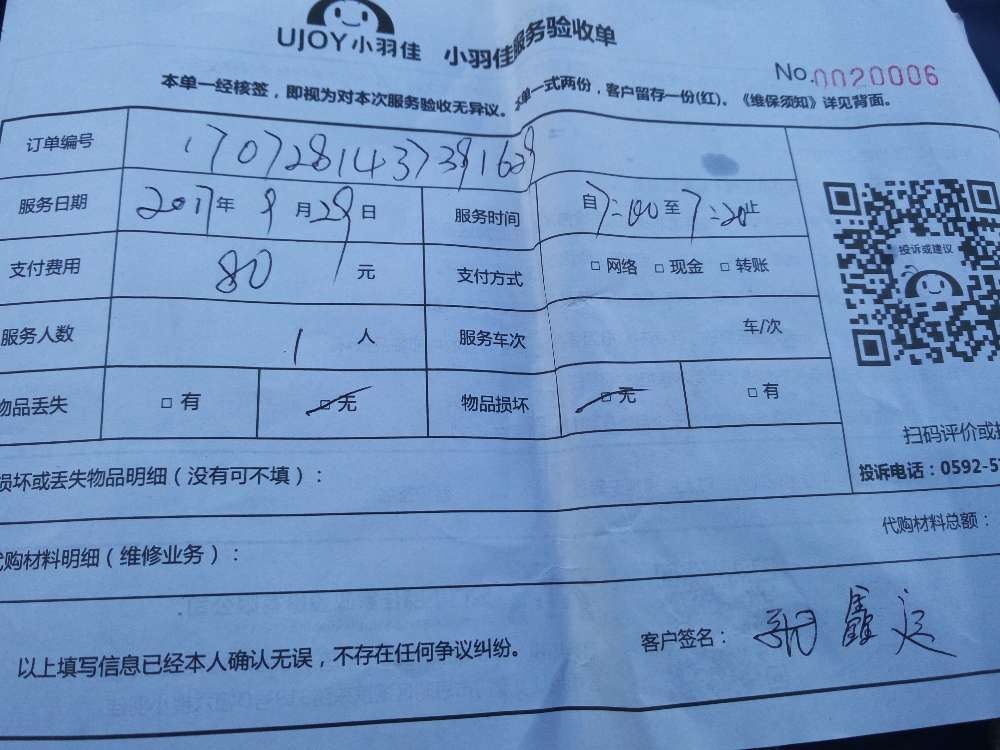 UJOY小羽佳 小羽佳服务验收单
No.0020006
本单一经核签，即视为对本次服务验收无异议。本单一式两份，客户留存一份(红)。《维保须知》详见背面。
订单编号
服务日期 2017年 9月29日 服务时间 自7:00至7:20止
支付费用 80 元 支付方式 □ 网络 □ 现金 □ 转账
投诉或建议
服务人数 1 人 服务车次 车/次
物品丢失 □ 有 □ 无 物品损坏 □ 无 □ 有
扫码评价或
损坏或丢失物品明细（没有可不填）：
投诉电话：0592-5
代购材料总额：
代购材料明细（维修业务）：
以上填写信息已经本人确认无误，不存在任何争议纠纷。
客户签名：